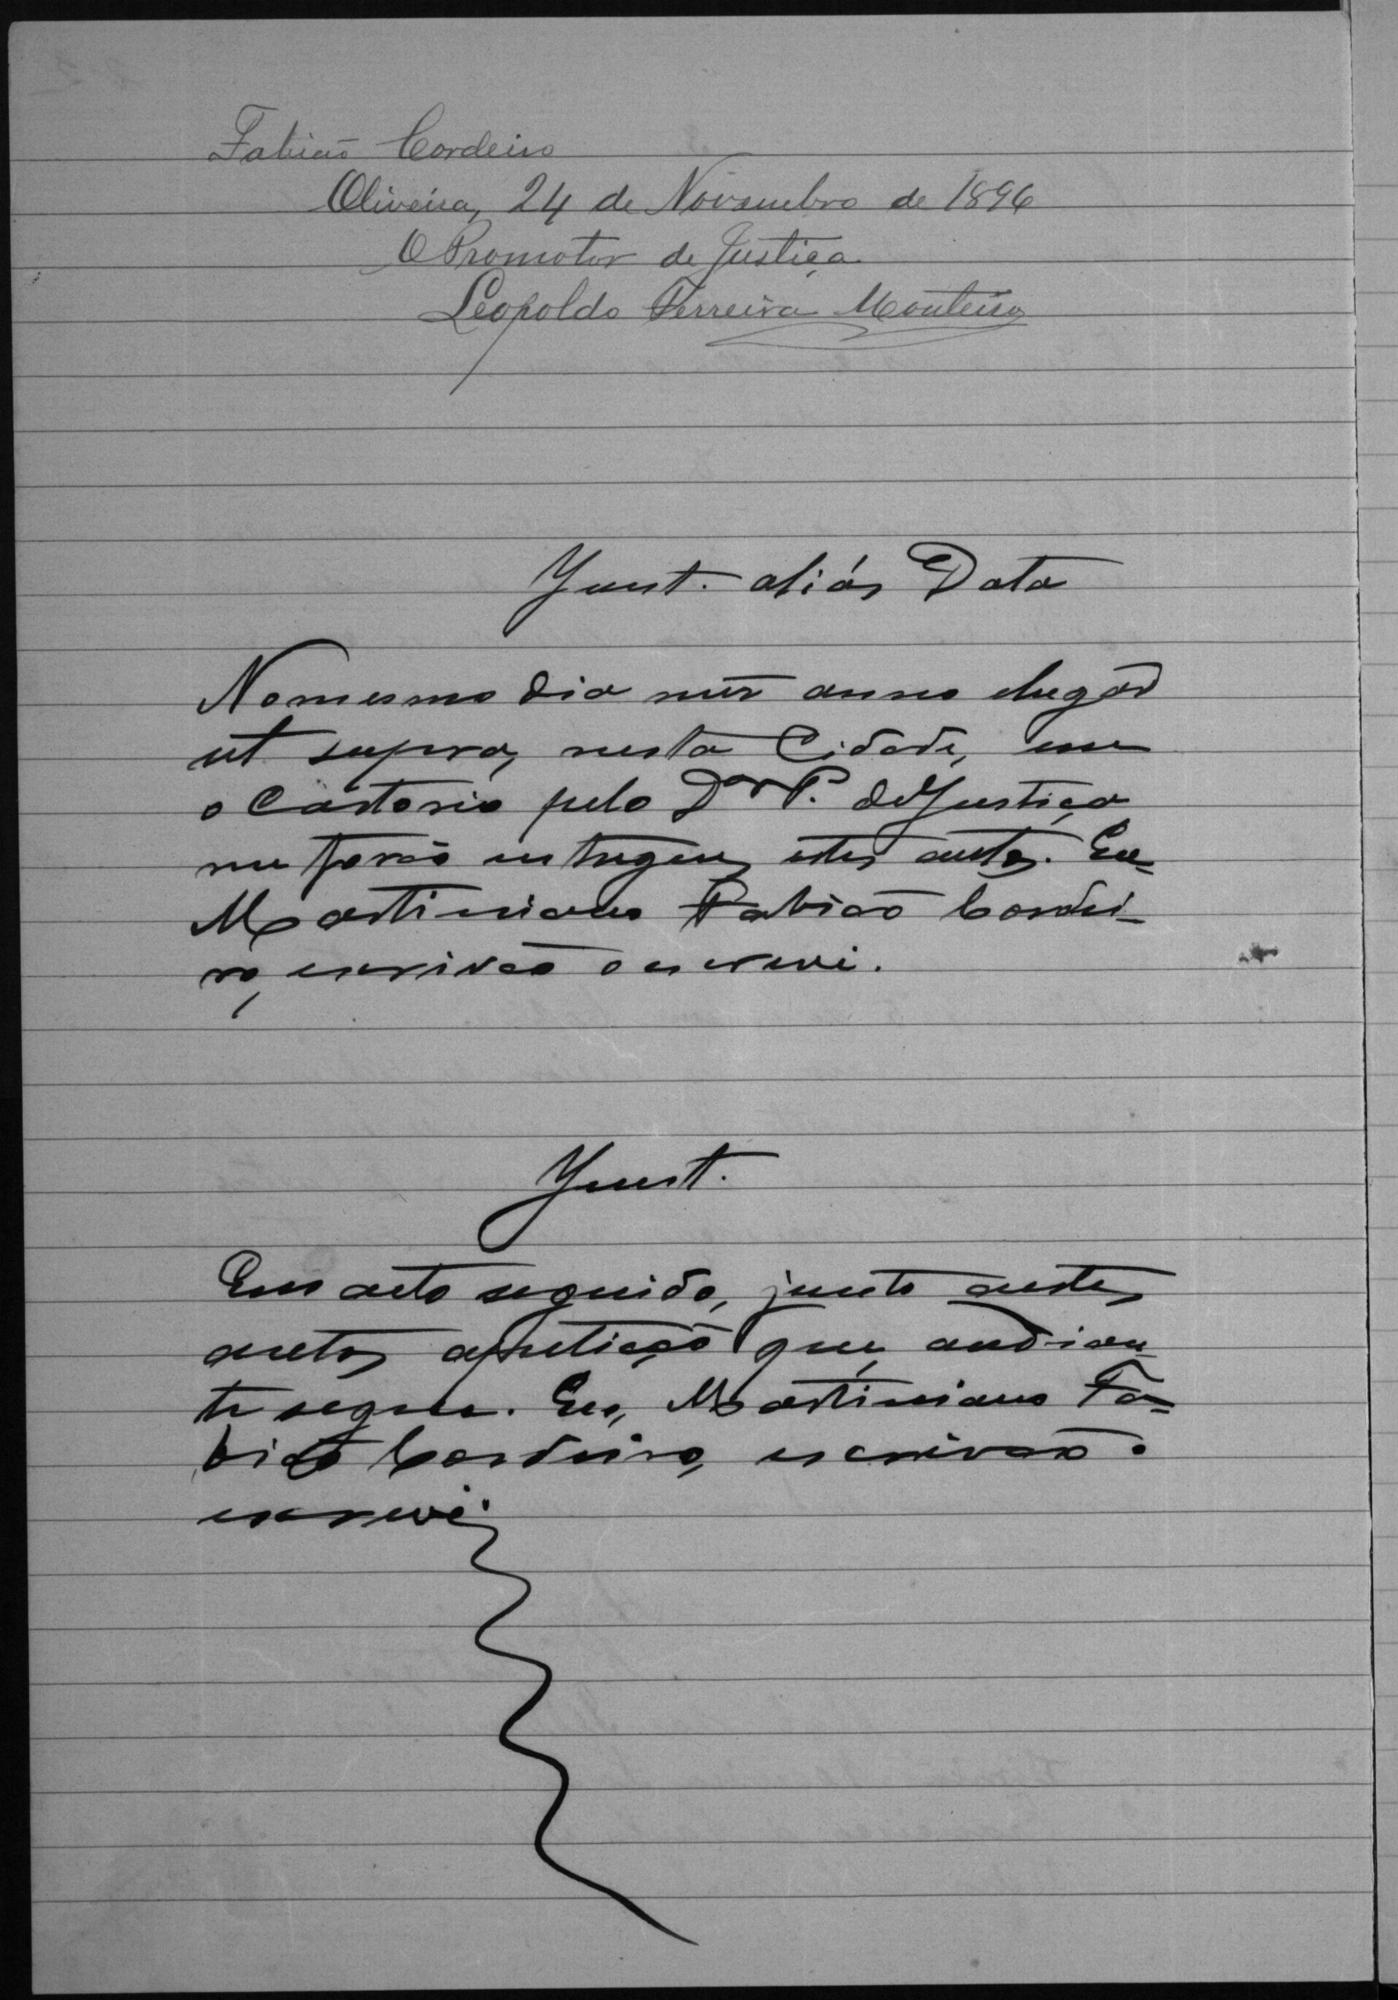 Fabião Cordeiro
Oliveira, 24 de Novembro de 1896
O Promotor de Justiça
Leopoldo Ferreira Monteiro
Junt. aliás Data
No mesmo dia mez anno elugar
ut supra, nesta Cidade, em
o Cartorio pelo Dor P. de Justiça
me forão entregues estes autos. Eu
Martiniano Fabião Cordei-
ro, escrivão o escrevi.
Junt.
Em acto seguido, junto aestes
autos apetição que, audian-
te segue. Eu, Martiniano Fa-
bião Cordeiro, escrivão o
escrevi